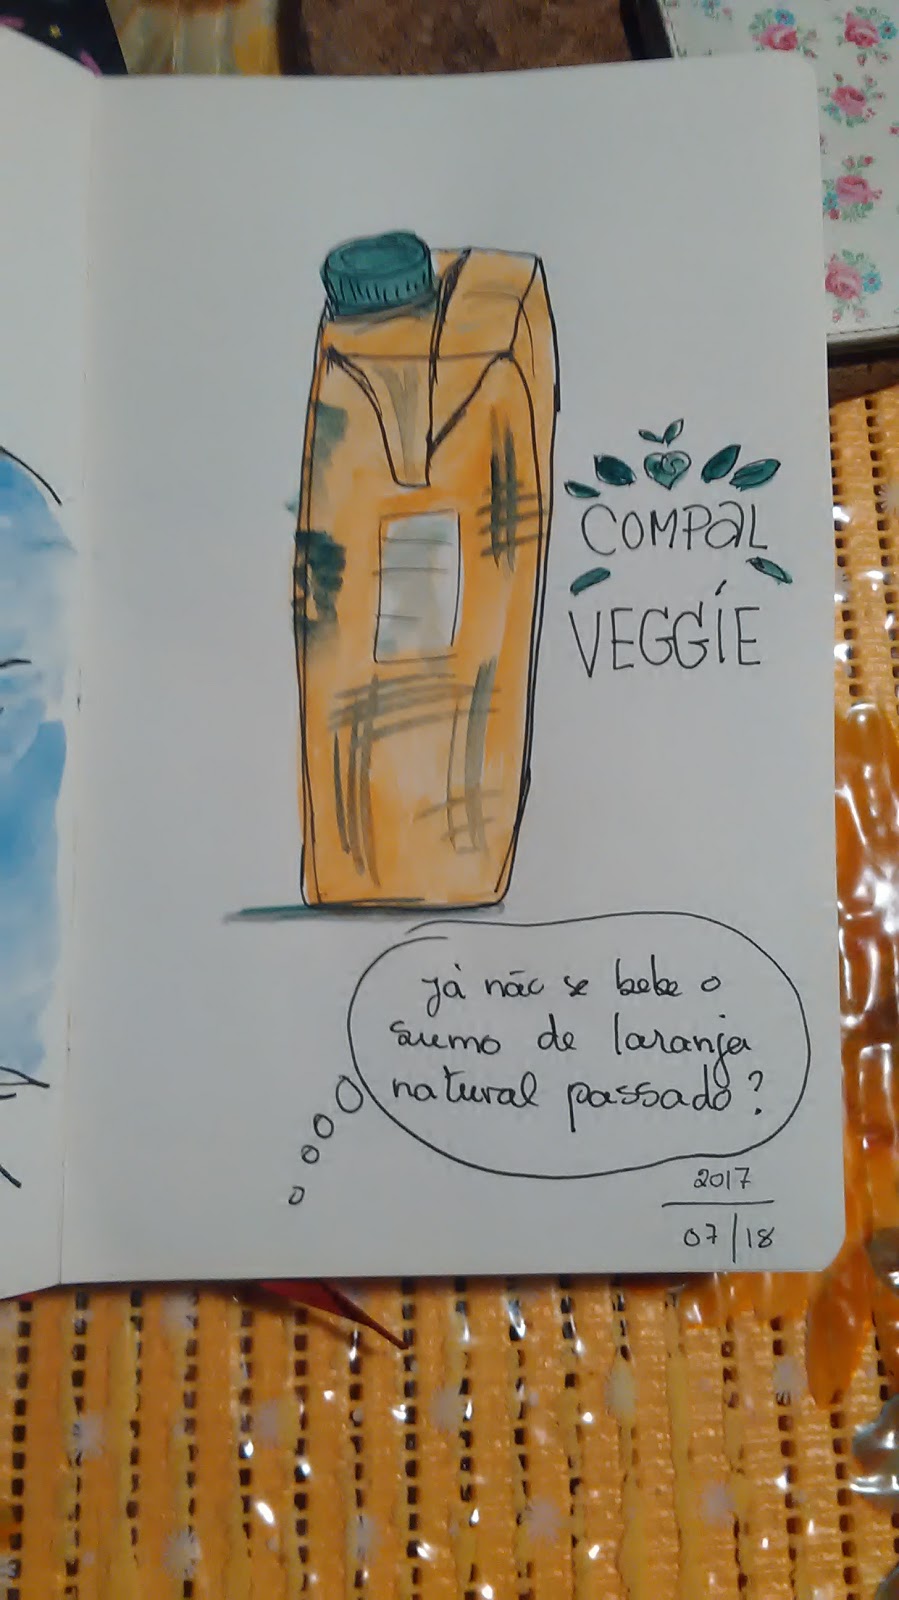 COMPAL
VEGGÍE
já não se bebe o
sumo de laranja
natural passado?
2017
07/18